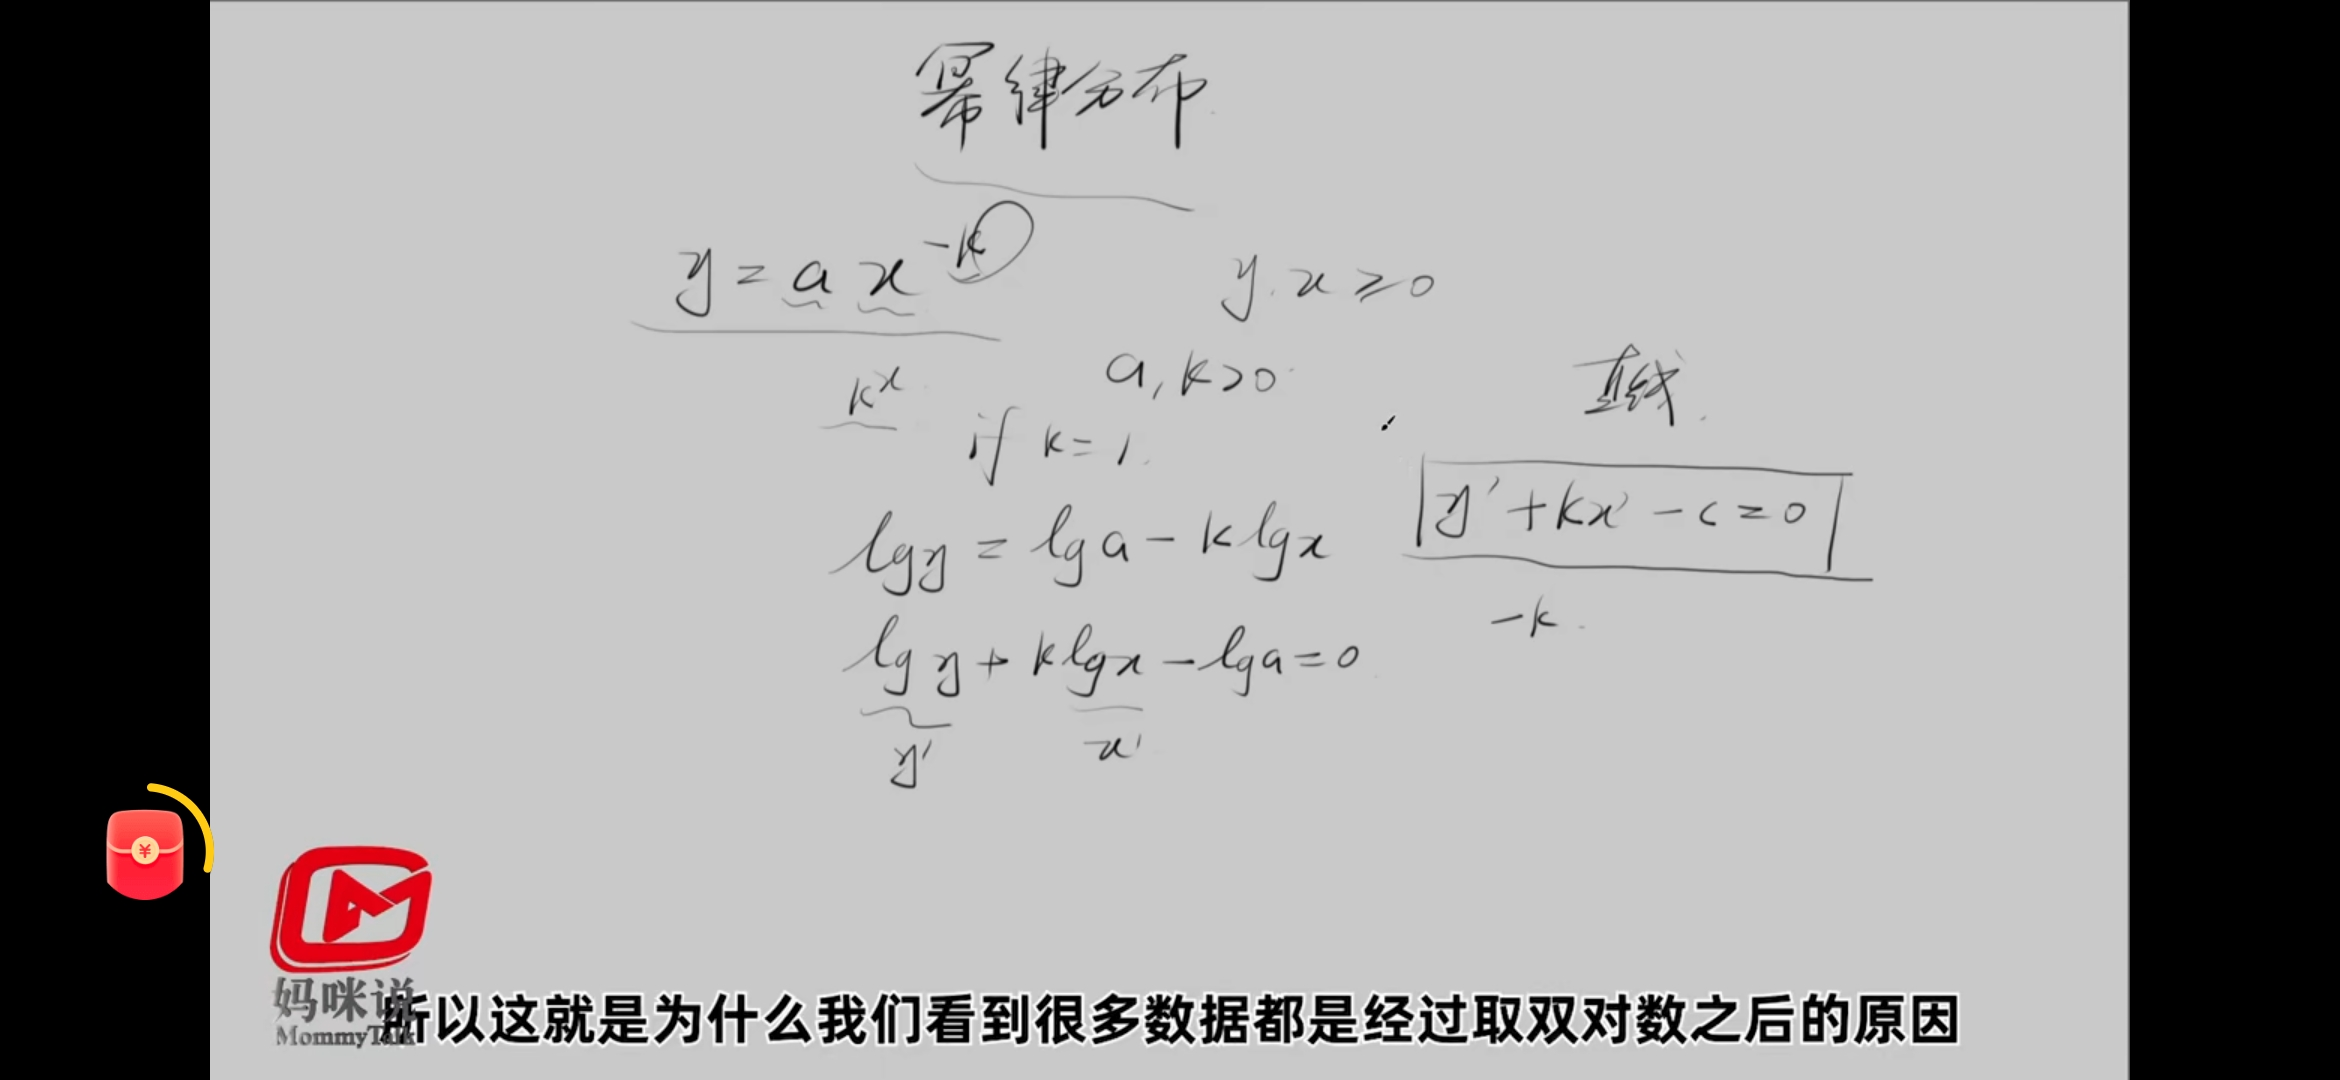 幂律分布
y = a x^{-k}
y, x ≥ 0
k^x
a, k > 0
直线
if k = 1
y' + kx' - c = 0
lg y = lg a - k lg x
-k
lg y + k lg x - lg a = 0
y'
x'
¥
妈咪说
MommyTalk
所以这就是为什么我们看到很多数据都是经过取双对数之后的原因